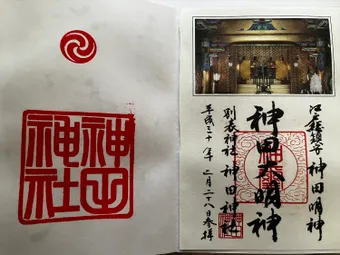 江戸総鎮守 神田明神
神田大明神
別表神社 神田神社
平成三十年 二月二十八日参拝
神田
神社